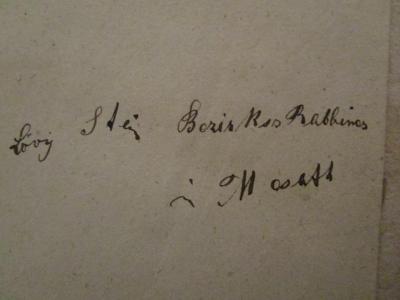 Lövÿ Stein Bezirks Rabbiner
in Mosatt